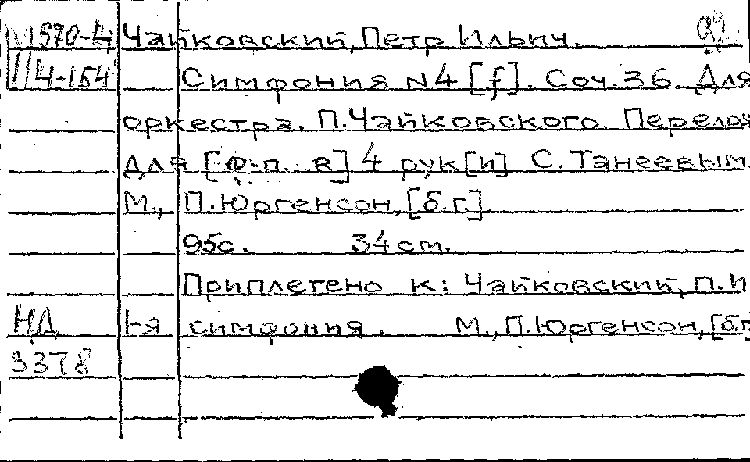 М570-4 Чайковский, Петр Ильич.
Ч-154 Симфония N4 [f]. Соч. 36. Для
оркестра. П.Чайковского. Перелож
для [ф-п. в] 4 рук[и] С. Танеевым.
М., П.Юргенсон, [б.г.]
95с. 34 см.
Приплетено к: Чайковский, П.И
НД 1-я симфония. М., П.Юргенсон, [б.г
3378